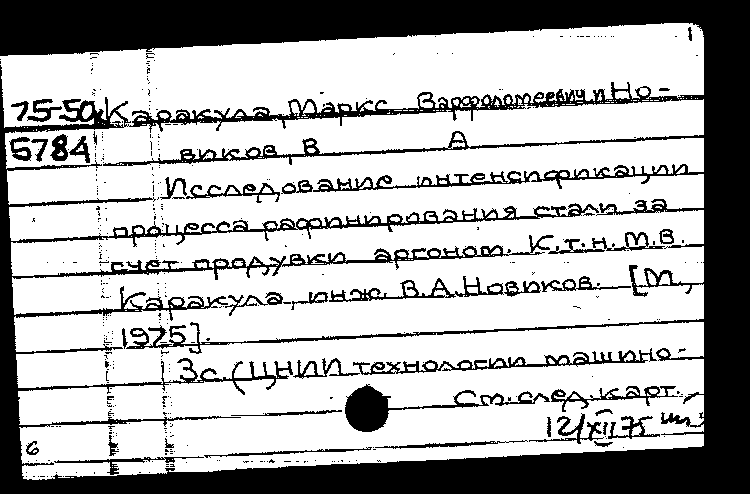 1
75-50 Каракула, Маркс Варфоломеевич и Но-
5784 виков, В А
Исследование интенсификации
процесса рафинирования стали за
счет продувки аргоном. К.т.н. М.В.
Каракула, инж. В.А.Новиков. [М.,
1975].
3с. (ЦНИИ технологии машино-
См. след. карт.,
12/XII 75
6